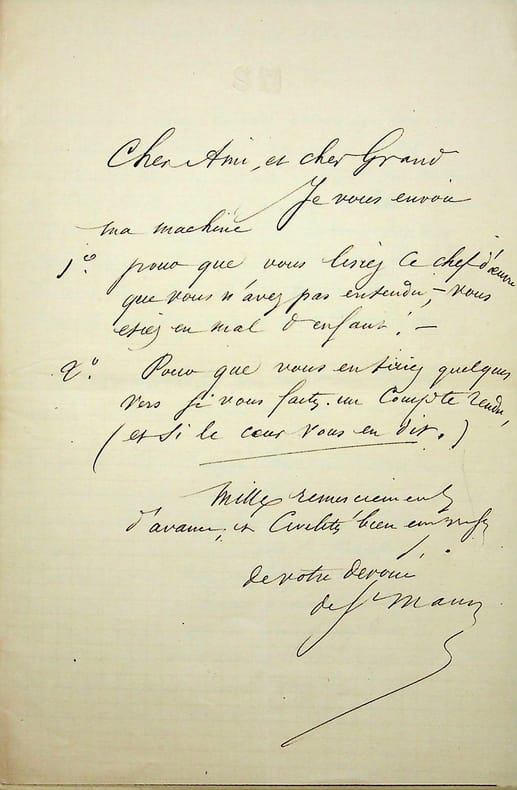 Cher Ami, et cher Grand
Je vous envoie
ma machine
1° pour que vous lisiez ce chef d'œuvre
que vous n'avez pas entendu, – vous
etiez en mal d'enfant! –
2° Pour que vous en tiriez quelques
vers si vous faites un Compte rendu,
(et si le cœur vous en dit.)
Mille remerciements
d'avance, et Civilités bien
de votre devoué
de St Maur